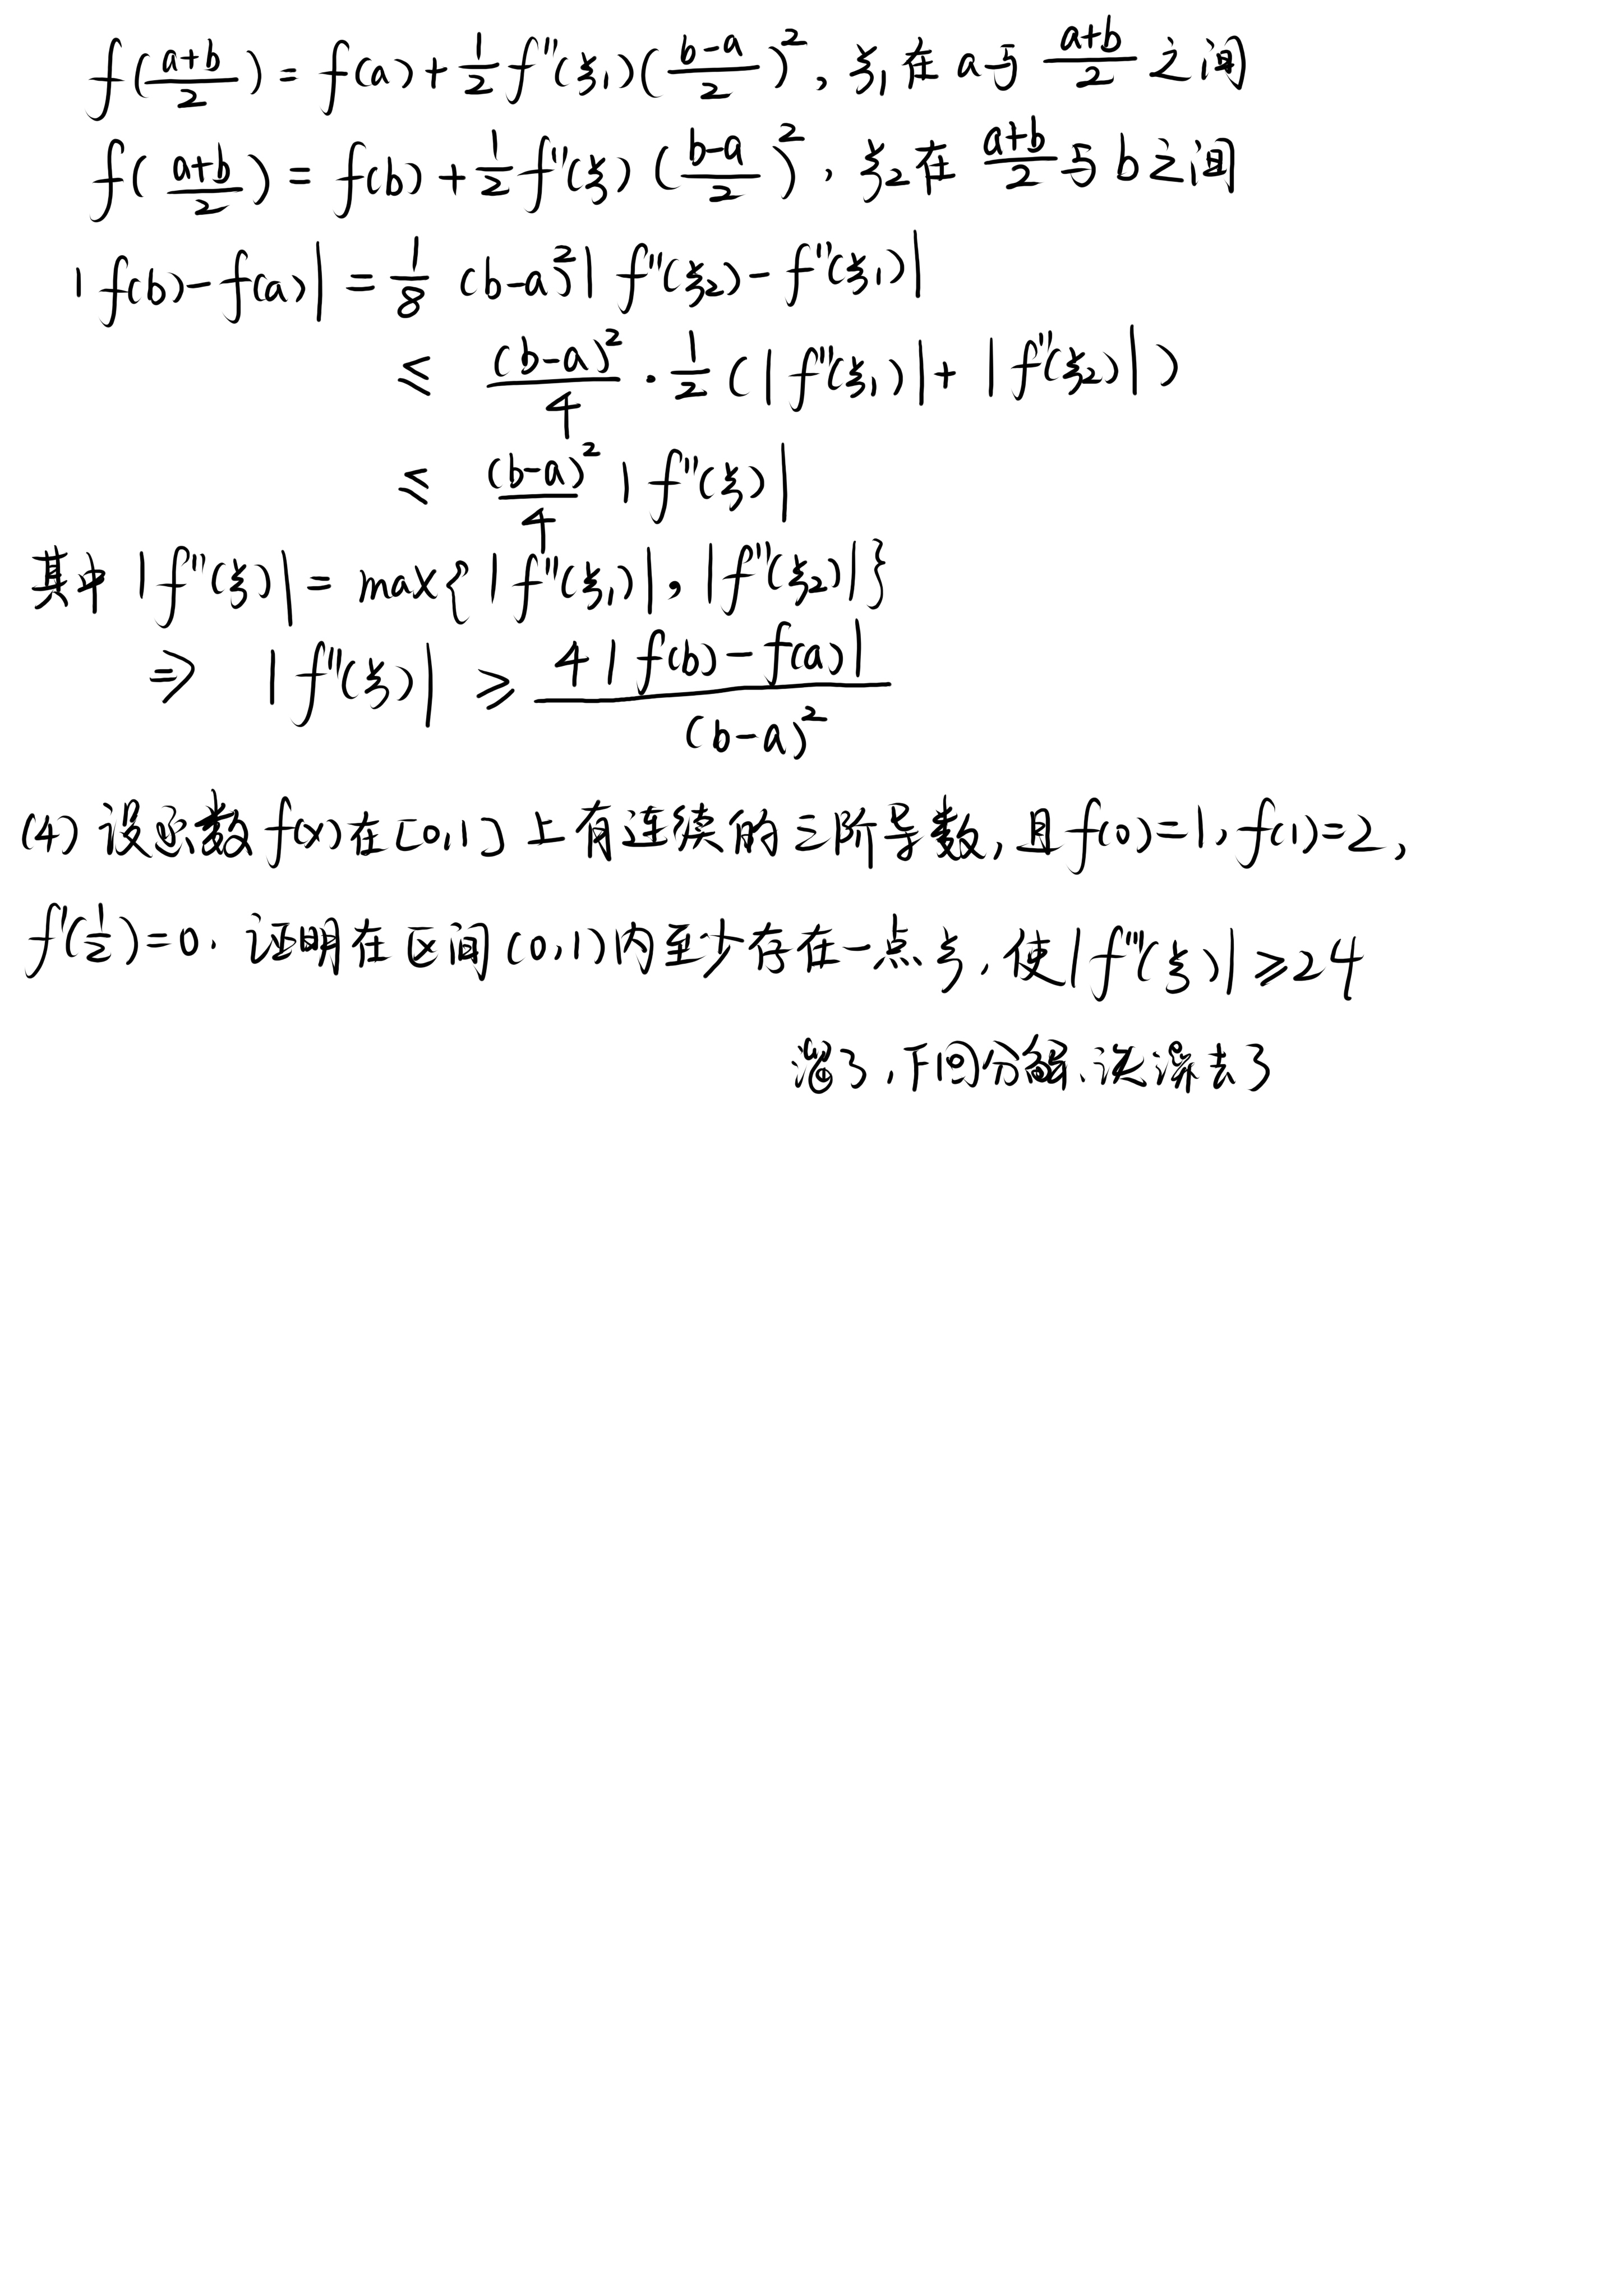 f((a+b)/2) = f(a) + 1/2 f''(ξ₁)((b-a)/2)², ξ₁在a与(a+b)/2之间
f((a+b)/2) = f(b) + 1/2 f''(ξ)((b-a)/2)², ξ₂在(a+b)/2与b之间
|f(b)-f(a)| = 1/8 (b-a)²|f''(ξ₂)-f''(ξ₁)|
≤ (b-a)²/4 · 1/2 (|f''(ξ₁)|+|f''(ξ₂)|)
≤ (b-a)²/4 |f''(ξ)|
其中 |f''(ξ)| = max{|f''(ξ₁)|, |f''(ξ₂)|}
⇒ |f''(ξ)| ≥ 4|f(b)-f(a)|/(b-a)²
(4) 设函数f(x)在[0,1]上有连续的三阶导数,且f(0)=1,f(1)=2,
f'(1/2)=0. 证明在区间(0,1)内至少存在一点ξ,使|f'''(ξ)|≥24
溜了,下回分解、该课去了